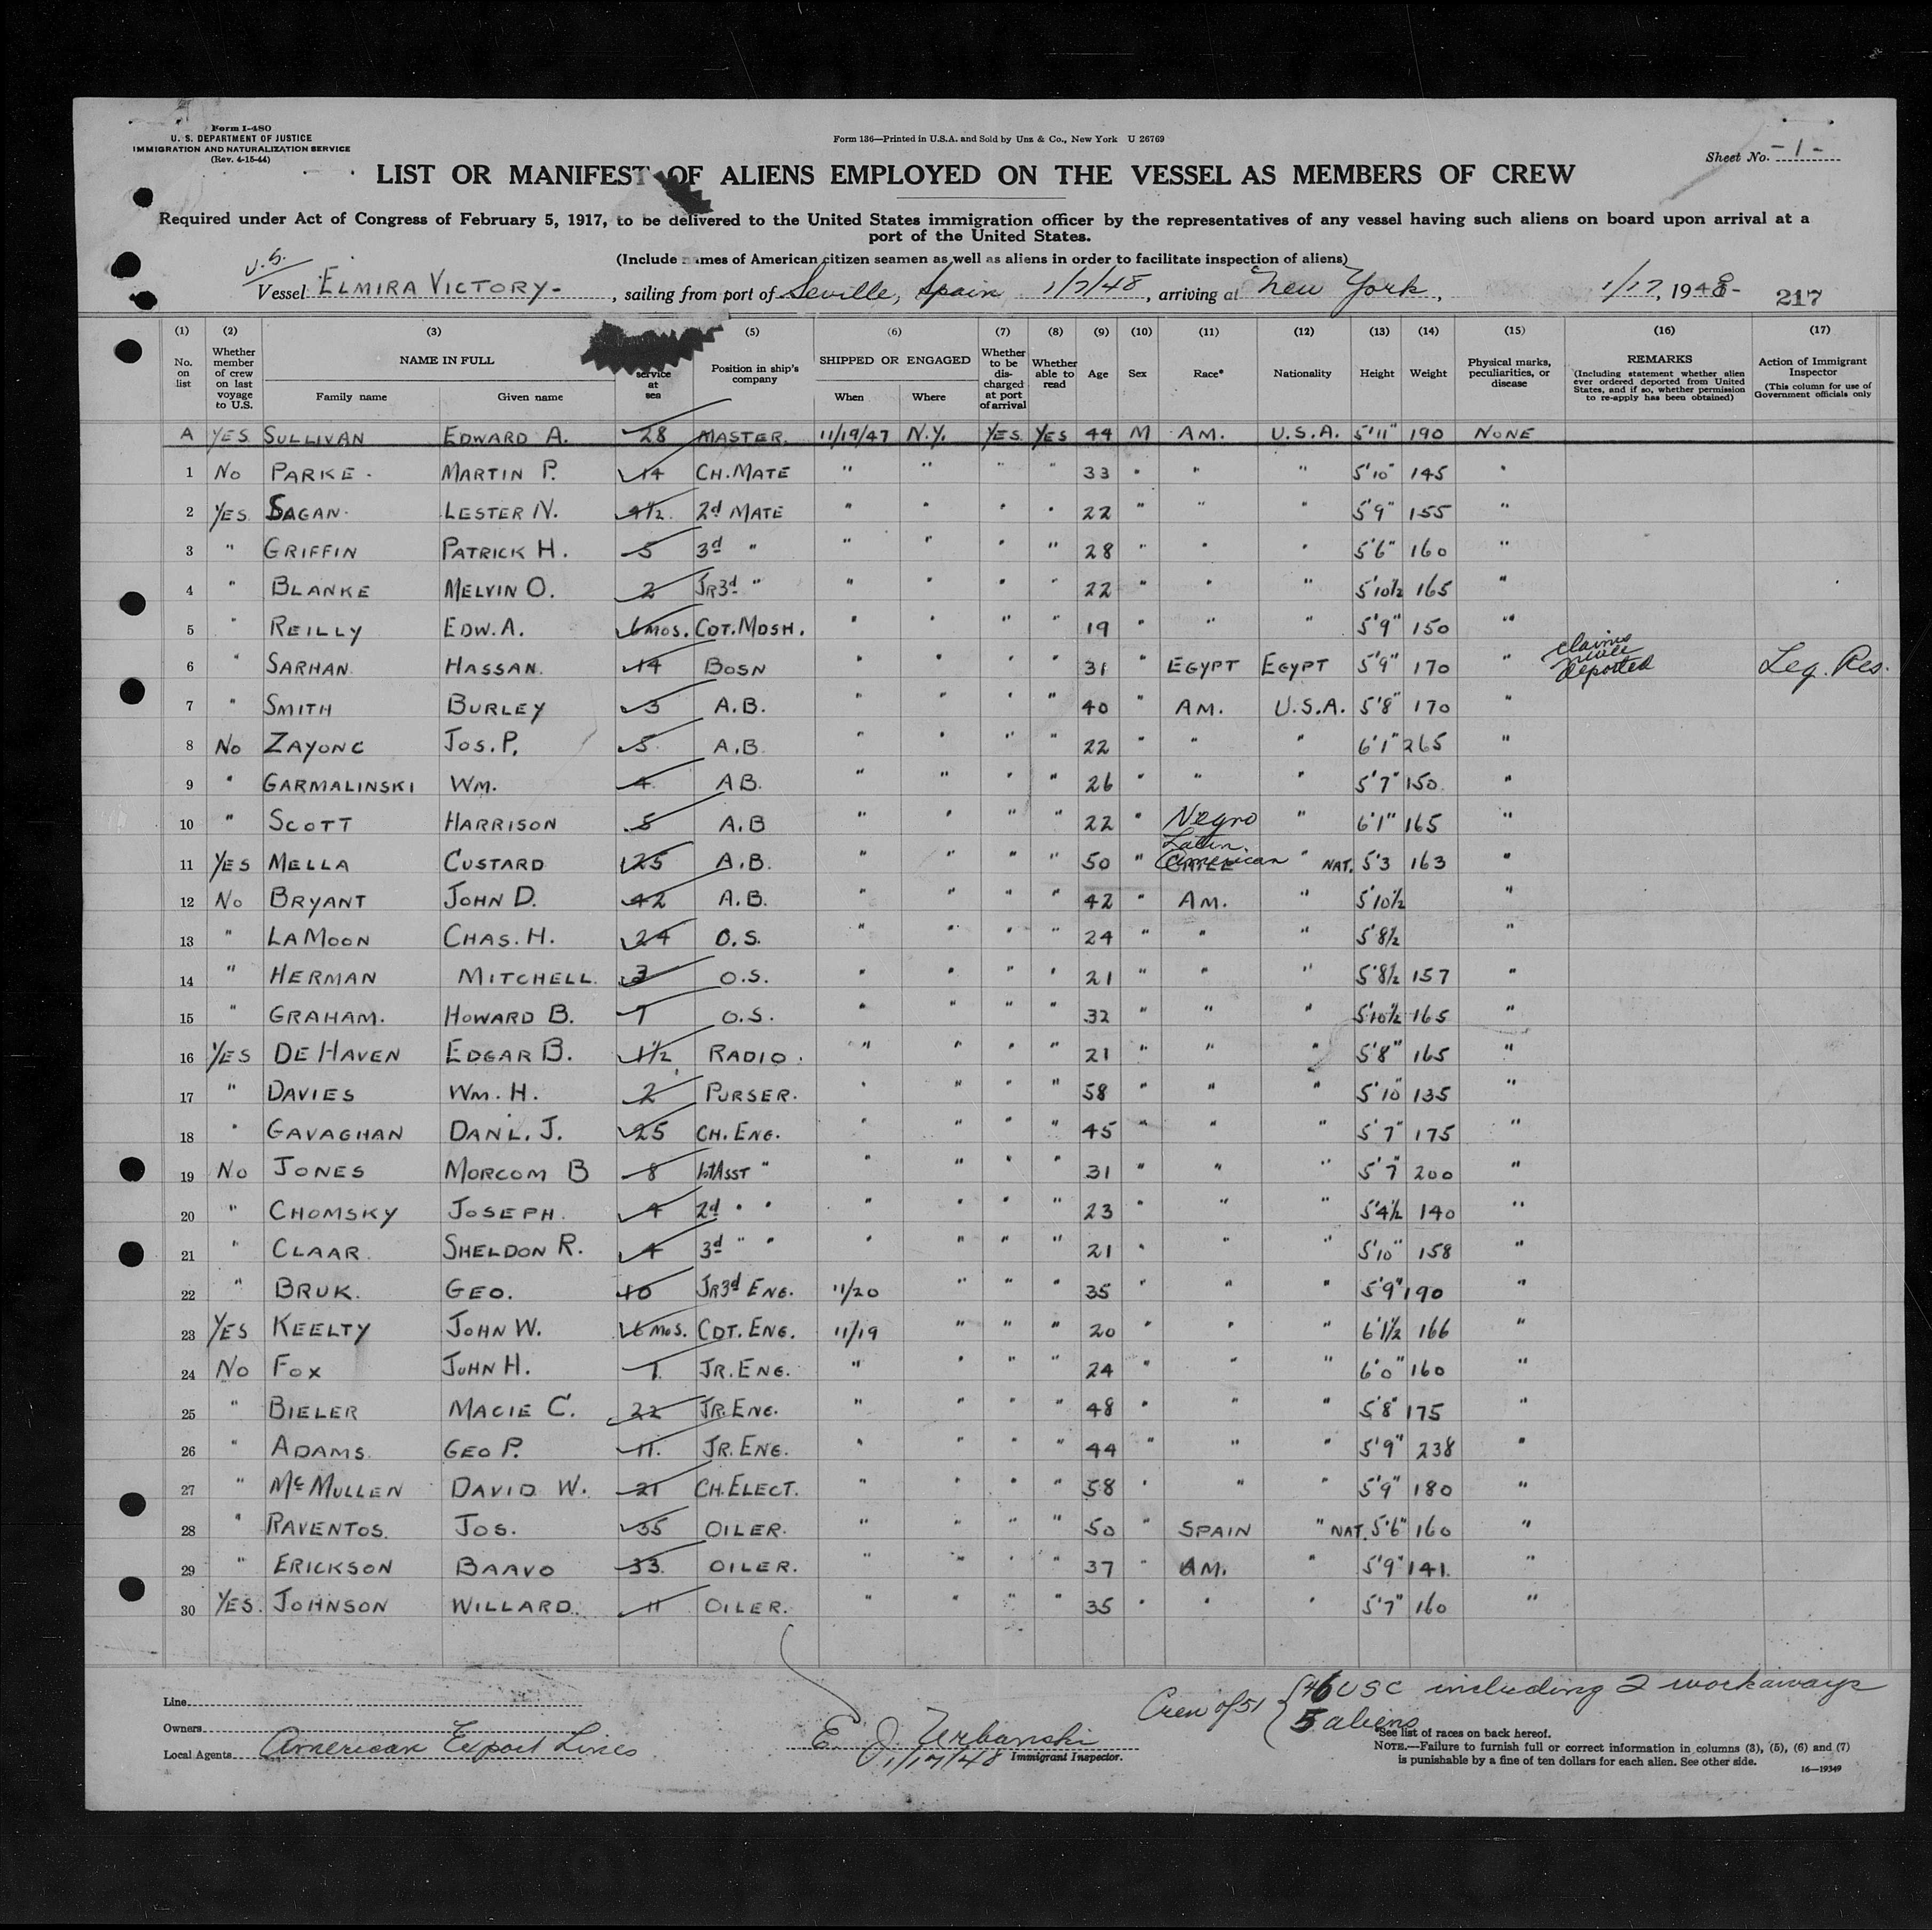 Form I-480
U. S. DEPARTMENT OF JUSTICE
IMMIGRATION AND NATURALIZATION SERVICE
(Rev. 4-15-44)
Form 136—Printed in U.S.A. and Sold by Unz & Co., New York U 26769
Sheet No. -1-
LIST OR MANIFEST OF ALIENS EMPLOYED ON THE VESSEL AS MEMBERS OF CREW
Required under Act of Congress of February 5, 1917, to be delivered to the United States immigration officer by the representatives of any vessel having such aliens on board upon arrival at a
port of the United States.
(Include names of American citizen seamen as well as aliens in order to facilitate inspection of aliens)
U.S.
Vessel ELMIRA VICTORY-, sailing from port of Seville, Spain 1/7/48, arriving at New York, 1/17, 1948- 217
(1) (2) (3) (5) (6) (7) (8) (9) (10) (11) (12) (13) (14) (15) (16) (17)
No. on list Whether member of crew on last voyage to U.S. NAME IN FULL Family name Given name service at sea Position in ship's company SHIPPED OR ENGAGED When Where Whether to be discharged at port of arrival Whether able to read Age Sex Race* Nationality Height Weight Physical marks, peculiarities, or disease REMARKS (Including statement whether alien ever ordered deported from United States, and if so, whether permission to re-apply has been obtained) Action of Immigrant Inspector (This column for use of Government officials only
A YES SULLIVAN EDWARD A. 28 MASTER. 11/19/47 N.Y. YES YES 44 M AM. U.S.A. 5'11" 190 NONE
1 NO PARKE- MARTIN P. 14 CH. MATE " " " " 33 " " " 5'10" 145 "
2 YES SAGAN- LESTER N. 4½ 2d MATE " " " " 22 " " " 5'9" 155 "
3 " GRIFFIN PATRICK H. 5 3d " " " " " 28 " " " 5'6" 160 "
4 " BLANKE MELVIN O. 2 JR3d " " " " " 22 " " " 5'10½ 165 "
5 " REILLY EDW. A. 6 MOS. CDT. MDSH. " " " " 19 " " " 5'9" 150 "
6 " SARHAN HASSAN. 14 BOSN " " " " 31 " EGYPT EGYPT 5'9" 170 " claims never deported Leg. Res.
7 " SMITH BURLEY 3 A.B. " " " " 40 " AM. U.S.A. 5'8" 170 "
8 NO ZAYONC JOS. P. 5 A.B " " " " 22 " " " 6'1" 265 "
9 " GARMALINSKI WM. 4 AB. " " " " 26 " " " 5'7" 150. "
10 " SCOTT HARRISON 5 A.B " " " " 22 " Negro " 6'1" 165 "
11 YES MELLA CUSTARD 25 A.B. " " " " 50 " Latin American CHILE " NAT. 5'3 163 "
12 NO BRYANT JOHN D. 42 A.B. " " " " 42 " AM. " 5'10½ "
13 " LAMOON CHAS. H. 24 O.S. " " " " 24 " " " 5'8½ "
14 " HERMAN MITCHELL. 3 O.S. " " " " 21 " " " 5'8½ 157 "
15 " GRAHAM. HOWARD B. 7 O.S. " " " " 32 " " " 5'10½ 165 "
16 YES DE HAVEN EDGAR B. 1½ RADIO. " " " " 21 " " " 5'8" 165 "
17 " DAVIES WM. H. 2 PURSER. " " " " 58 " " " 5'10" 135 "
18 " GAVAGHAN DANL. J. 25 CH. ENG. " " " " 45 " " " 5'7" 175 "
19 NO JONES MORCOM B 8 1st ASST " " " " " 31 " " " 5'7" 200 "
20 " CHOMSKY JOSEPH. 4 2d " " " " " " 23 " " " 5'4½ 140 "
21 " CLAAR. SHELDON R. 4 3d " " " " " " 21 " " " 5'10" 158 "
22 " BRUK. GEO. 10 JR3d ENG. 11/20 " " " 35 " " " 5'9" 190 "
23 YES KEELTY JOHN W. 6 MOS. CDT. ENG. 11/19 " " " 20 " " " 6'1½ 166 "
24 NO FOX JOHN H. 1 JR. ENG. " " " " 24 " " " 6'0" 160 "
25 " BIELER MACIE C. 22 JR. ENG. " " " " 48 " " " 5'8" 175 "
26 " ADAMS. GEO P. 11. JR. ENG. " " " " 44 " " " 5'9" 238 "
27 " McMULLEN DAVID W. 21 CH. ELECT. " " " " 58 " " " 5'9" 180 "
28 " RAVENTOS. JOS. 35 OILER. " " " " 50 " SPAIN " NAT. 5'6" 160 "
29 " ERICKSON BAAVO 33. OILER. " " " " 37 " AM. " 5'9" 141. "
30 YES. JOHNSON WILLARD. 11 OILER. " " " " 35 " " " 5'7" 160 "
Line
Owners
Local Agents American Export Lines
E. J. Urbanski
1/17/48 Immigrant Inspector.
Crew of 51 { 46 USC including 2 workaways
5 aliens
*See list of races on back hereof.
NOTE.—Failure to furnish full or correct information in columns (3), (5), (6) and (7)
is punishable by a fine of ten dollars for each alien. See other side.
16—19349